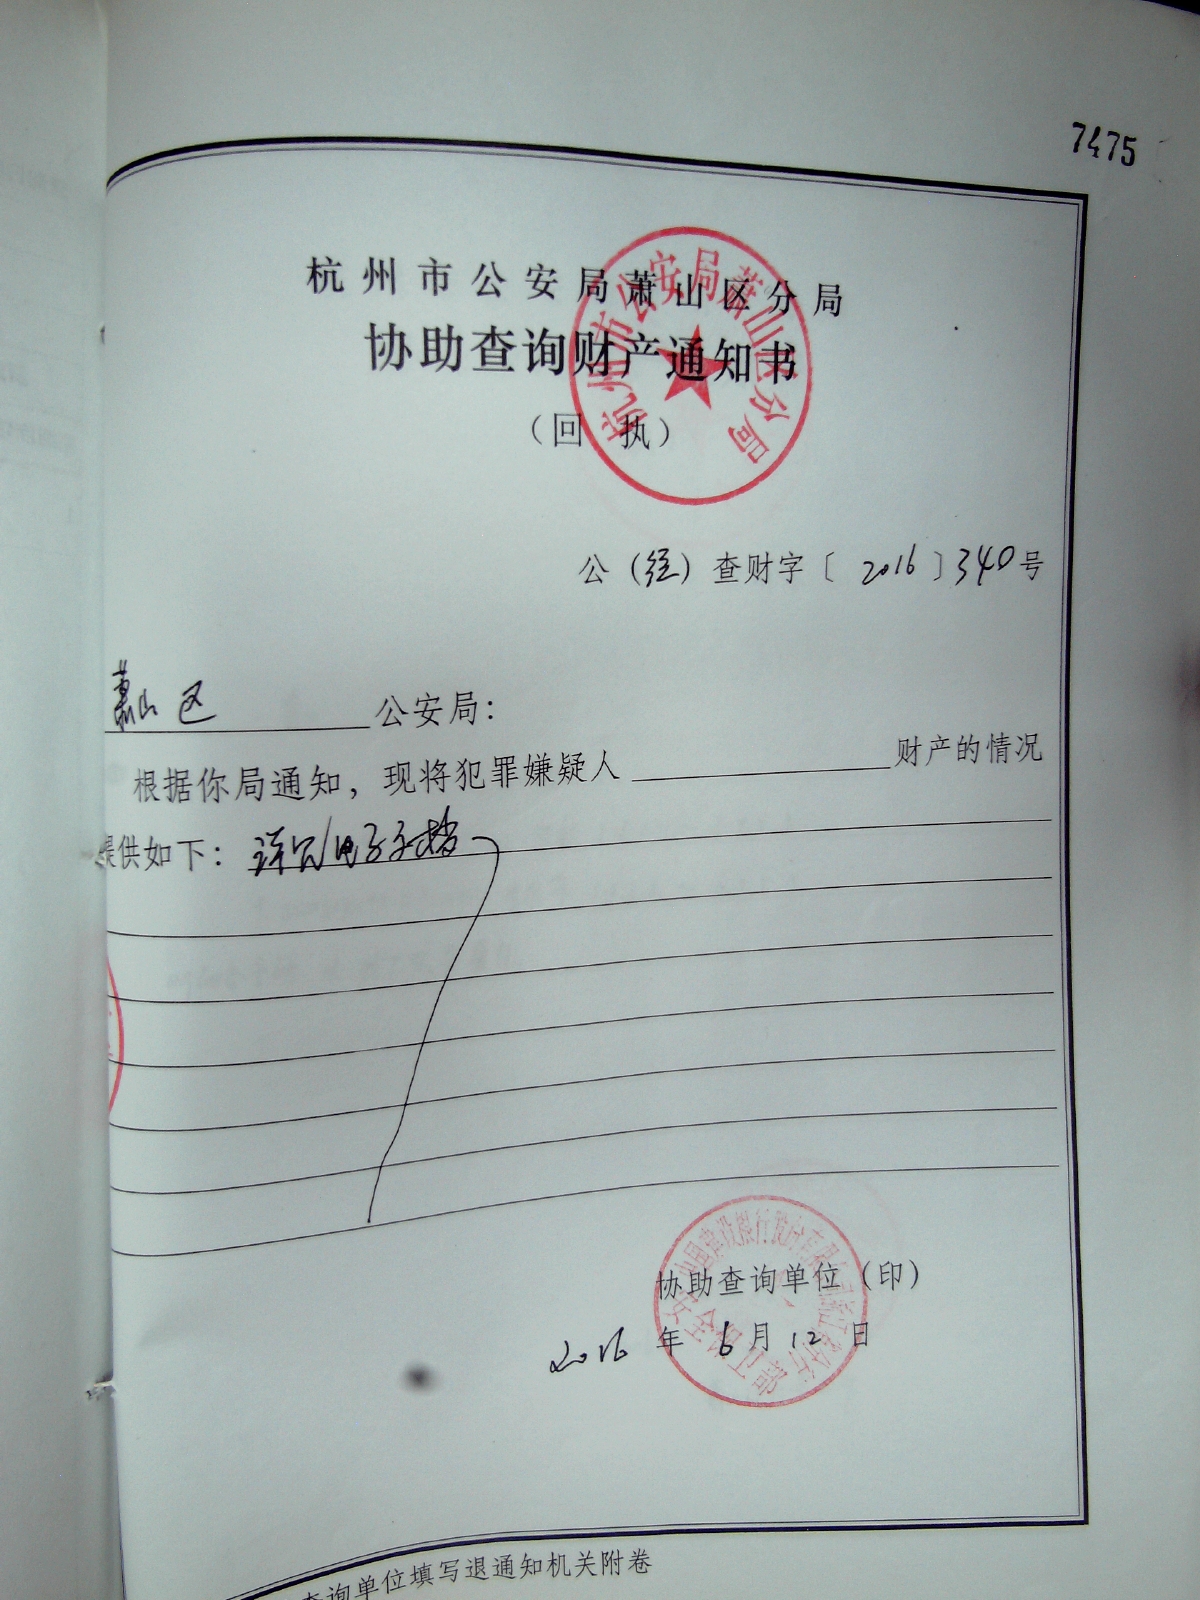 7475
杭州市公安局萧山区分局
协助查询财产通知书
（回 执）
杭州市公安局萧山区分局
公（经）查财字〔2016〕340号
萧山区 公安局：
根据你局通知，现将犯罪嫌疑人 财产的情况
提供如下：详见电子文档
中国建设银行股份有限公司浙江省分行
安全保卫部
协助查询单位（印）
2016年6月12日
查询单位填写退通知机关附卷